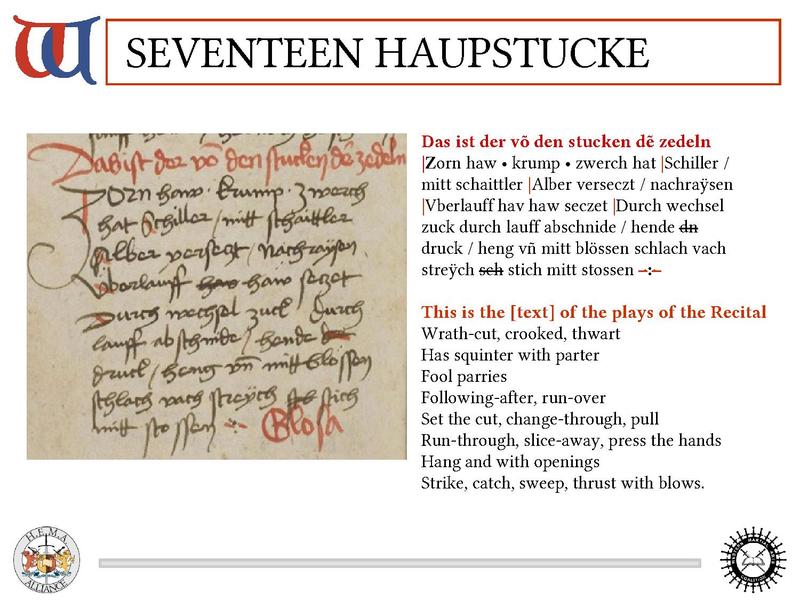 SEVENTEEN HAUPSTUCKE
Das ist der võ den stucken dẽ zedeln
Zorn haw · krump · zwerch
hat Schiller / mitt schaittler
Alber verseczt / Nachraÿsen
Vberlauff haw haw seczet
Durch wechsel zuck durch
lauff abschnide / hende dn
druck / heng vñ mitt blössen
schlach vach streÿch sch stich
mitt stossen
Glosa
Das ist der võ den stucken dẽ zedeln
|Zorn haw • krump • zwerch hat |Schiller /
mitt schaittler |Alber verseczt / nachraÿsen
|Vberlauff hav haw seczet |Durch wechsel
zuck durch lauff abschnide / hende dn
druck / heng vñ mitt blössen schlach vach
streÿch sch stich mitt stossen –:–
This is the [text] of the plays of the Recital
Wrath-cut, crooked, thwart
Has squinter with parter
Fool parries
Following-after, run-over
Set the cut, change-through, pull
Run-through, slice-away, press the hands
Hang and with openings
Strike, catch, sweep, thrust with blows.
H.E.M.A.
ALLIANCE